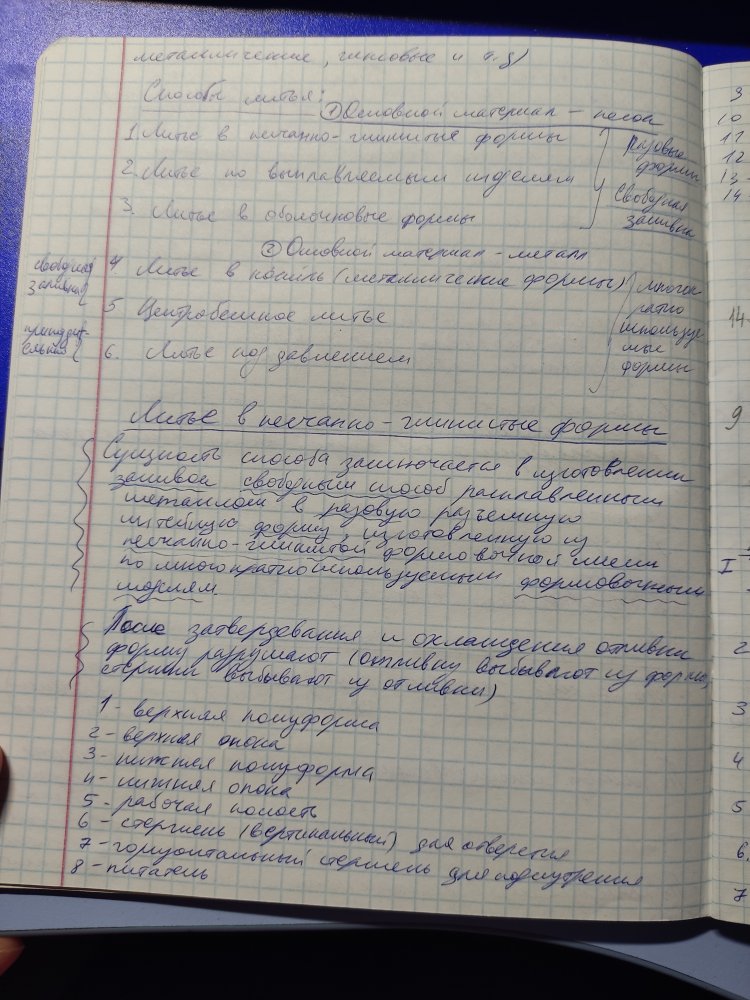 металлические, гипсовые и т.д)
Способы литья:
① Основной материал – песок
1. Литье в песчанно-глинистые формы
2. Литье по выплавляемым изделиям
3. Литье в оболочковые формы
Разовые
формы
Свободная
заливка
② Основной материал - металл
4. Литье в кокиль (металлические формы)
5 Центробежное литье
6. Литье под давлением
свободная
заливка
принудит-
ельный
многок
ратно
используе
мые
формы
Литье в песчанно-глинистые формы
Сущность способа заключается в изготовлении
заливой свободным способ расплавленным
металлом в разовую разъемную
литейную форму, изготовленную из
песчанно-глинистой формовочной смеси
по многократно используемым формовочным
моделям.
После затвердевания и охлаждения отливки
форму разрушают (отливку выбивают из формы,
стержни выбивают из отливки)
1 - верхняя полуформа
2 - верхняя опока
3 - нижняя полуформа
4 - нижняя опока
5 - рабочая полость
6 - стержень (вертикальный) для отверстия
7 - горизонтальный стержень для
8 - питатель
3
10
11
12
13 -
14
14-
9
I
2
3
4
5
6.
7